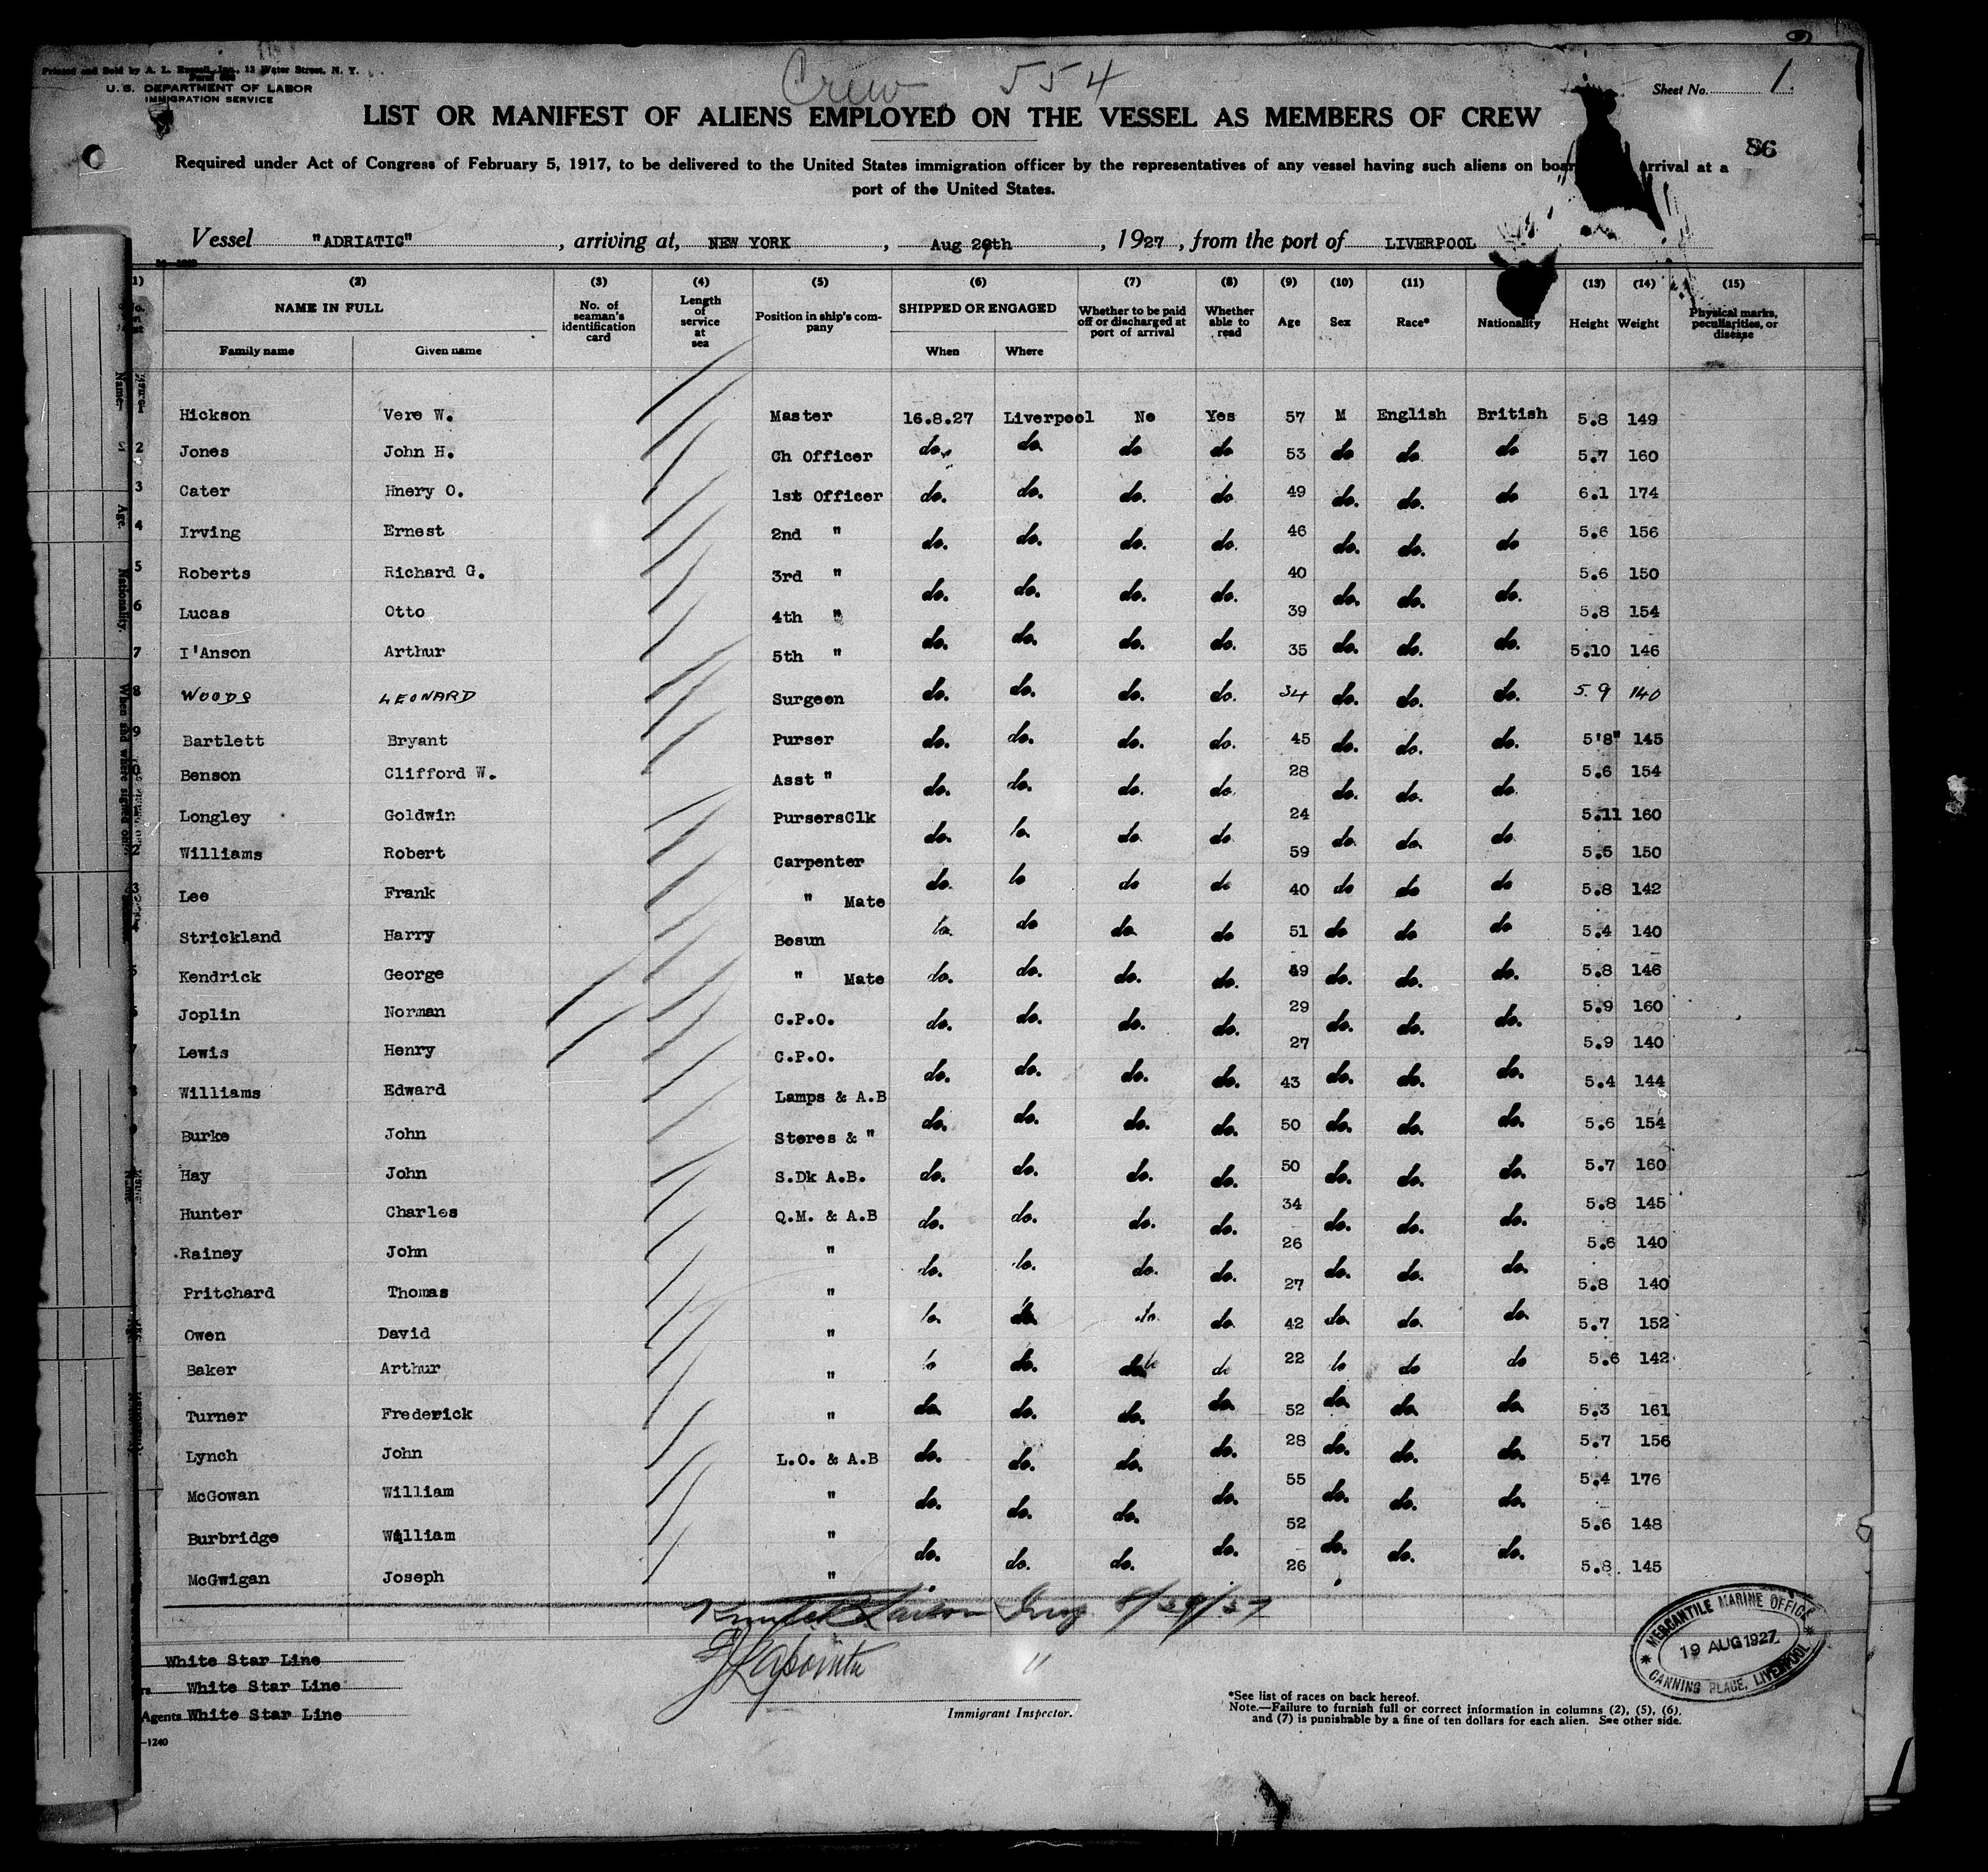 Printed and Sold by A. L. Russell, Inc., 12 Water Street, N. Y.
U. S. DEPARTMENT OF LABOR
IMMIGRATION SERVICE
Crew 554
Sheet No. 1.
LIST OR MANIFEST OF ALIENS EMPLOYED ON THE VESSEL AS MEMBERS OF CREW
86
Required under Act of Congress of February 5, 1917, to be delivered to the United States immigration officer by the representatives of any vessel having such aliens on boar arrival at a
port of the United States.
Vessel "ADRIATIC" , arriving at, NEW YORK , Aug 29th , 1927 , from the port of LIVERPOOL
(2) (3) (4) (5) (6) (7) (8) (9) (10) (11) (13) (14) (15)
NAME IN FULL No. of seaman's identification card Length of service at sea Position in ship's company SHIPPED OR ENGAGED Whether to be paid off or discharged at port of arrival Whether able to read Age Sex Race* Nationality Height Weight Physical marks, peculiarities, or disease
Family name Given name When Where
Hickson Vere W. Master 16.8.27 Liverpool No Yes 57 M English British 5.8 149
2 Jones John H. Ch Officer do. do. do do 53 do do. do 5.7 160
3 Cater Hnery O. 1st Officer do. do. do. do 49 do. do. do 6.1 174
4 Irving Ernest 2nd " do. do. do. do. 46 do. do. do 5.6 156
5 Roberts Richard G. 3rd " do. do. do. do. 40 do. do. do. 5.6 150
6 Lucas Otto 4th " do. do. do. do. 39 do. do. do. 5.8 154
7 I'Anson Arthur 5th " do. do. do. do. 35 do. do. do. 5.10 146
8 WOODS LEONARD Surgeon do. do. do. do. 34 do. do. do. 5.9 140
9 Bartlett Bryant Purser do. do. do. do. 45 do. do. do. 5'8" 145
Benson Clifford W. Asst " do. do. do. do 28 do. do. do 5.6 154
Longley Goldwin PursersClk do. do. do. do 24 do. do. do 5.11 160
Williams Robert Carpenter do. do do do 59 do do do 5.5 150
Lee Frank " Mate 40 5.8 142
Strickland Harry Bosun do. do do. do 51 do do do 5.4 140
Kendrick George " Mate do. do. do. do. 49 do. do. do. 5.8 146
Joplin Norman C.P.O. do. do. do. do. 29 do. do. do. 5.9 160
Lewis Henry C.P.O. 27 5.9 140
Williams Edward Lamps & A.B do. do. do. do. 43 do. do. do. 5.4 144
Burke John Stores & " do. do. do. do. 50 do. do. do. 5.6 154
Hay John S.Dk A.B. do. do. do. do. 50 do. do. do. 5.7 160
Hunter Charles Q.M. & A.B do. do. do. do. 34 do. do. do. 5.8 145
Rainey John " do. do. do. do. 26 do. do. do. 5.6 140
Pritchard Thomas " 27 5.8 140
Owen David " do. do. do. do. 42 do. do. do 5.7 152
Baker Arthur " do do. do do 22 do do do 5.6 142
Turner Frederick " do. do. do. do. 52 do. do. do. 5.3 161
Lynch John L.O. & A.B do. do. do. do. 28 do. do. do. 5.7 156
McGowan William " do. do. do. do. 55 do. do. do. 5.4 176
Burbridge William " do. do. do. do. 52 do. do. do. 5.6 148
McGwigan Joseph " 26 5.8 145
8/29/27
White Star Line
White Star Line
Agents White Star Line
-1240
Immigrant Inspector.
*See list of races on back hereof.
Note.—Failure to furnish full or correct information in columns (2), (5), (6),
and (7) is punishable by a fine of ten dollars for each alien. See other side.
MERCANTILE MARINE OFFICE
19 AUG 1927
CANNING PLACE, LIVERPOOL